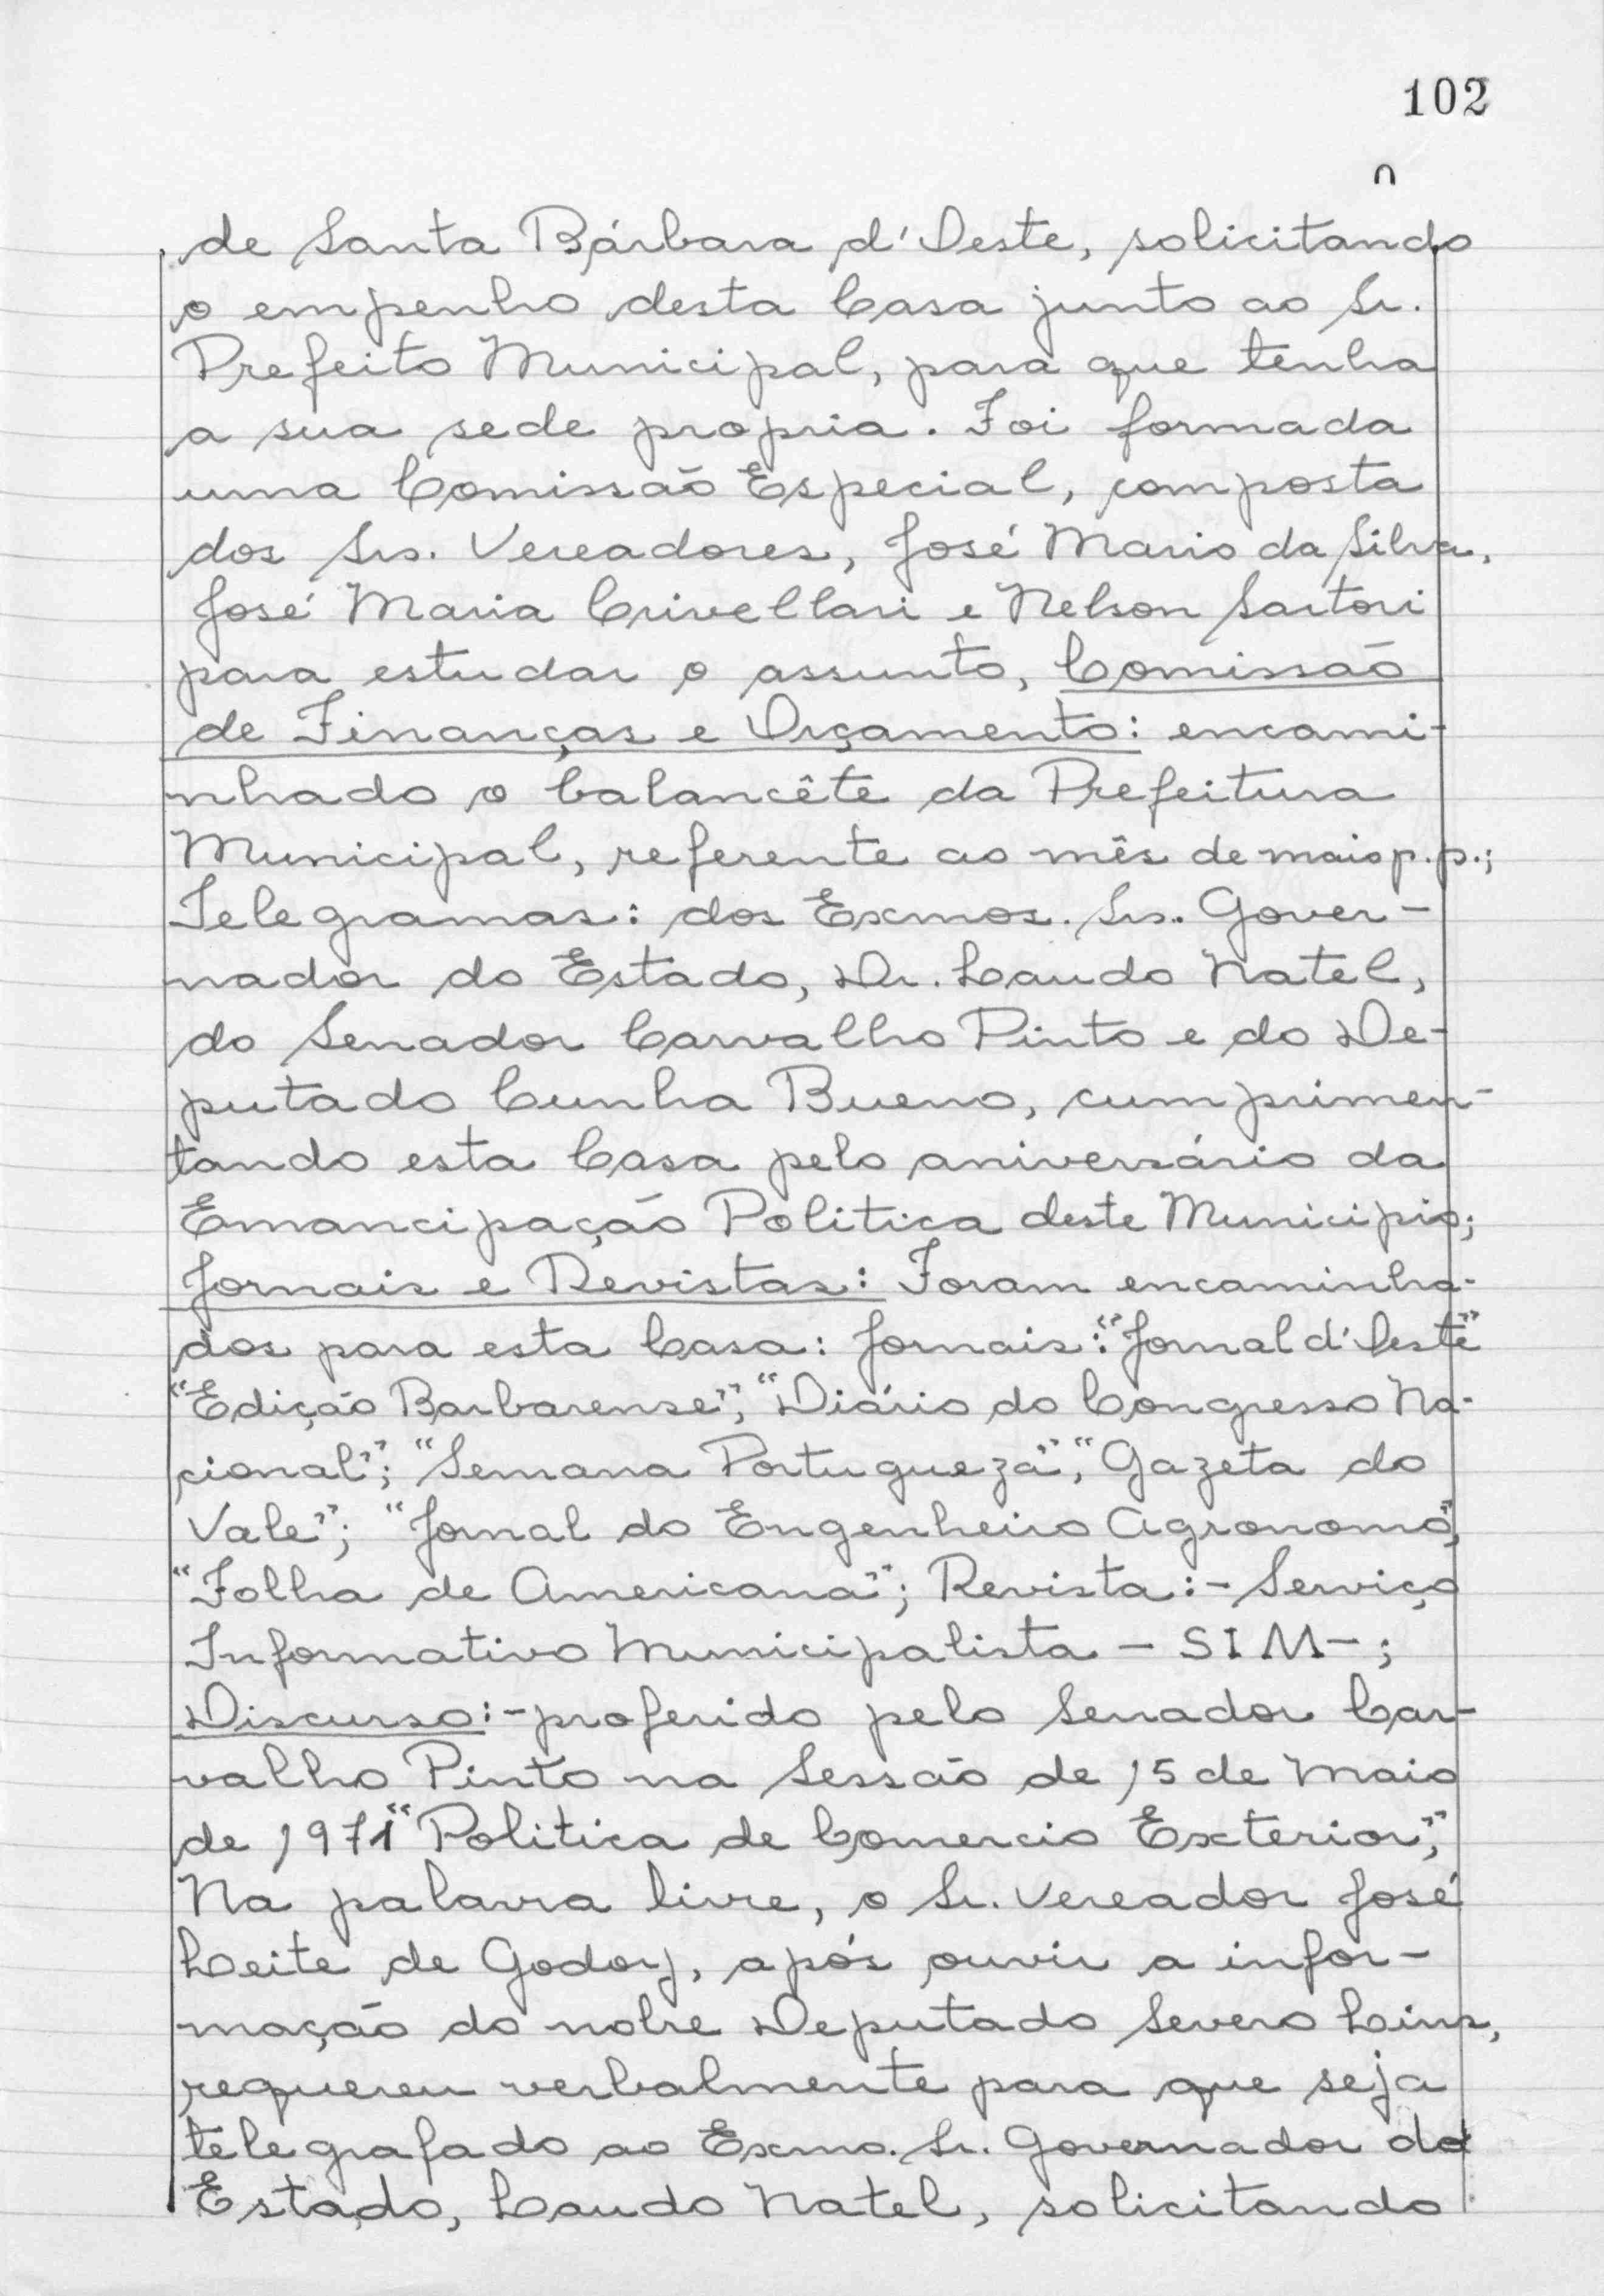 102
de Santa Bárbara d'Oeste, solicitando
o empenho desta Casa junto ao Sr.
Prefeito Municipal, para que tenha
a sua sede propria. Foi formada
uma Comissão Especial, composta
dos Srs. Vereadores, José Mario da Silva,
José Maria Crivellari e Nelson Sartori
para estudar o assunto, Comissão
de Finanças e Orçamento: encami-
nhado o balancête da Prefeitura
Municipal, referente ao mês de maio p.p.;
Telegramas: dos Exmos. Srs. Gover-
nador do Estado, Dr. Laudo Natel,
do Senador Carvalho Pinto e do De-
putado Cunha Bueno, cumprimen-
tando esta Casa pelo aniversário da
Emancipação Politica deste Municipio;
Jornais e Revistas: Foram encaminha-
dos para esta Casa: Jornais: "Jornal d'Oeste"
"Edição Barbarense", "Diário do Congresso Na-
cional"; "Semana Portugueza", "Gazeta do
Vale"; "Jornal do Engenheiro Agronomo",
"Folha de Americana"; Revista:- Serviço
Informativo Municipalista - SIM-;
Discurso:- proferido pelo Senador Car-
valho Pinto na Sessão de 15 de Maio
de 1971 "Politica de Comercio Exterior",
Na palavra livre, o Sr. Vereador José
Leite de Godoy, após ouvir a infor-
mação do nobre Deputado Severo Lins,
requereu verbalmente para que seja
telegrafado ao Exmo. Sr. Governador do
Estado, Laudo Natel, solicitando